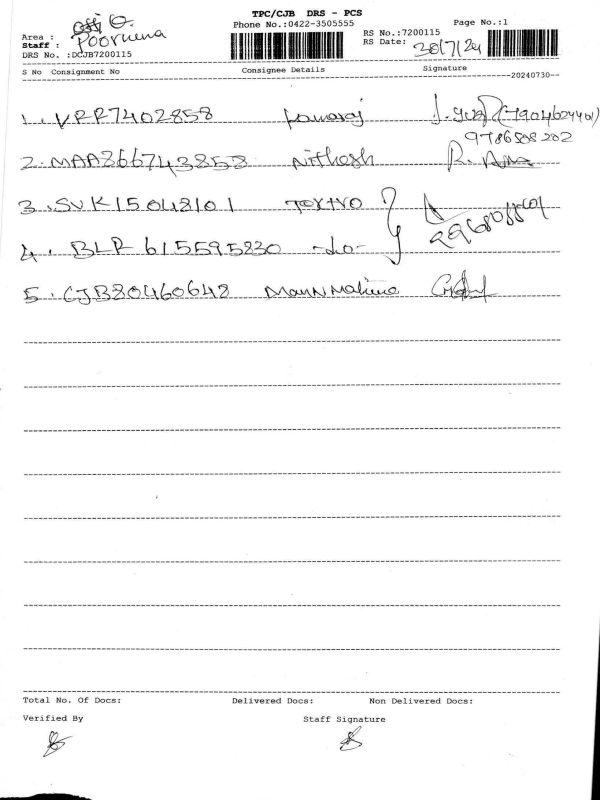 TPC/CJB DRS - PCS
Phone No.:0422-3505555
Page No.:1
Area :
Staff : Poornena
DRS No. :DCJB7200115
RS No.:7200115
RS Date: 30/7/24
S No Consignment No Consignee Details Signature
20240730
1. VRR7402858 Kamaraj
9786508202
2. MAA866743858 Nithesh
3. SVK15048101
4. BLR 615595830 -do-
5. CJB80460648
Total No. Of Docs: Delivered Docs: Non Delivered Docs:
Verified By Staff Signature